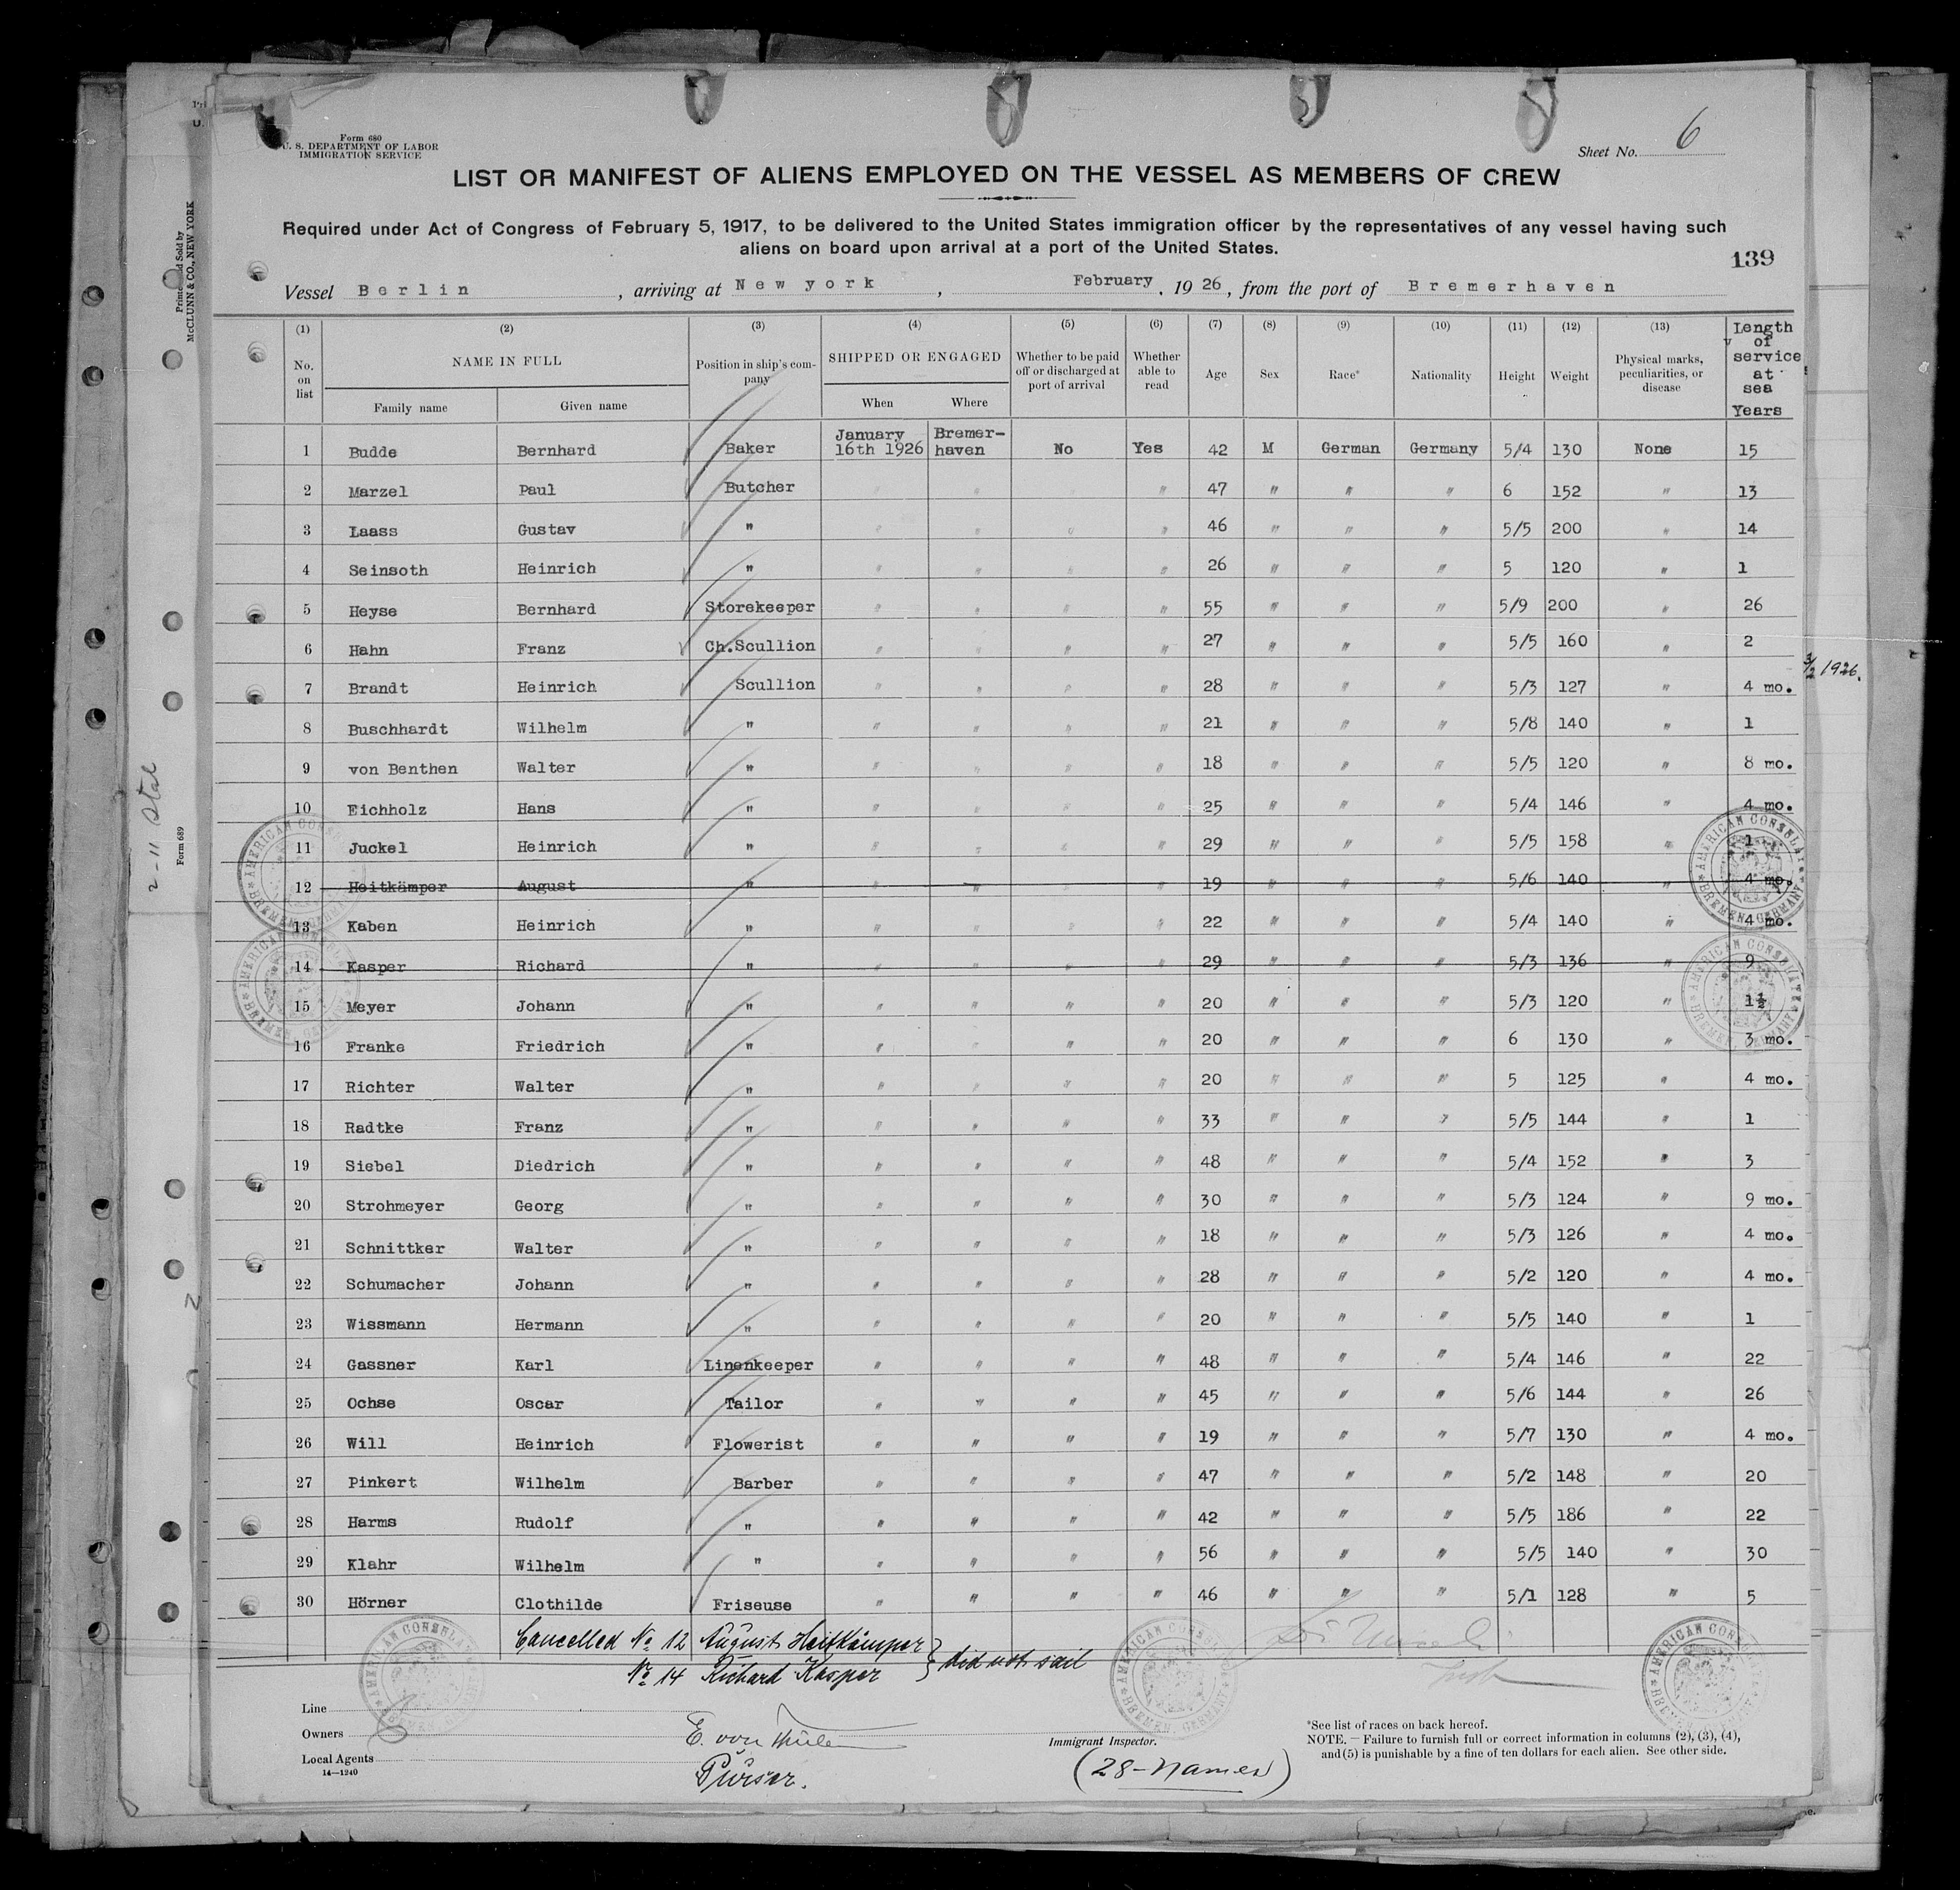 Form 680
U. S. DEPARTMENT OF LABOR
IMMIGRATION SERVICE
Sheet No. 6
LIST OR MANIFEST OF ALIENS EMPLOYED ON THE VESSEL AS MEMBERS OF CREW
Required under Act of Congress of February 5, 1917, to be delivered to the United States immigration officer by the representatives of any vessel having such
aliens on board upon arrival at a port of the United States.
139
Vessel Berlin, arriving at New york, February, 1926, from the port of Bremerhaven
(1) (2) (3) (4) (5) (6) (7) (8) (9) (10) (11) (12) (13)
No. on list NAME IN FULL Family name Given name Position in ship's company SHIPPED OR ENGAGED When Where Whether to be paid off or discharged at port of arrival Whether able to read Age Sex Race* Nationality Height Weight Physical marks, peculiarities, or disease Length of service at sea Years
1 Budde Bernhard Baker January 16th 1926 Bremerhaven No Yes 42 M German Germany 5/4 130 None 15
2 Marzel Paul Butcher " " " 47 " " " 6 152 " 13
3 Laass Gustav " " " " " 46 " " " 5/5 200 " 14
4 Seinsoth Heinrich " " " " " 26 " " " 5 120 " 1
5 Heyse Bernhard Storekeeper " " " " 55 " " " 5/9 200 " 26
6 Hahn Franz Ch.Scullion " " " " 27 " " " 5/5 160 " 2
7 Brandt Heinrich Scullion " " " " 28 " " " 5/3 127 " 4 mo.
8 Buschhardt Wilhelm " " " " " 21 " " " 5/8 140 " 1
9 von Benthen Walter " " " " " 18 " " " 5/5 120 " 8 mo.
10 Eichholz Hans " " " " " 25 " " " 5/4 146 " 4 mo.
11 Juckel Heinrich " " " " " 29 " " " 5/5 158 " 1
12 Heitkämper August " " " " " 19 " " " 5/6 140 " 4 mo.
13 Kaben Heinrich " " " " " 22 " " " 5/4 140 " 4 mo.
14 Kasper Richard " " " " " 29 " " " 5/3 136 " 9
15 Meyer Johann " " " " " 20 " " " 5/3 120 " 1½
16 Franke Friedrich " " " " " 20 " " " 6 130 " 3 mo.
17 Richter Walter " " " " " 20 " " " 5 125 " 4 mo.
18 Radtke Franz " " " " " 33 " " " 5/5 144 " 1
19 Siebel Diedrich " " " " " 48 " " " 5/4 152 " 3
20 Strohmeyer Georg " " " " " 30 " " " 5/3 124 " 9 mo.
21 Schnittker Walter " " " " " 18 " " " 5/3 126 " 4 mo.
22 Schumacher Johann " " " " " 28 " " " 5/2 120 " 4 mo.
23 Wissmann Hermann " " " " " 20 " " " 5/5 140 " 1
24 Gassner Karl Linenkeeper " " " " 48 " " " 5/4 146 " 22
25 Ochse Oscar Tailor " " " " 45 " " " 5/6 144 " 26
26 Will Heinrich Flowerist " " " " 19 " " " 5/7 130 " 4 mo.
27 Pinkert Wilhelm Barber " " " " 47 " " " 5/2 148 " 20
28 Harms Rudolf " " " " " 42 " " " 5/5 186 " 22
29 Klahr Wilhelm " " " " " 56 " " " 5/5 140 " 30
30 Hörner Clothilde Friseuse " " " " 46 " " " 5/1 128 " 5
Cancelled No 12 August Heitkämper
No 14 Richard Kasper } did not sail
Line
Owners
Local Agents
14—1240
E. von
Purser.
Immigrant Inspector.
(28-names)
*See list of races on back hereof.
NOTE.—Failure to furnish full or correct information in columns (2), (3), (4),
and (5) is punishable by a fine of ten dollars for each alien. See other side.
AMERICAN CONSULATE BREMEN, GERMANY
AMERICAN CONSULATE BREMEN, GERMANY
AMERICAN CONSULATE BREMEN, GERMANY
AMERICAN CONSULATE BREMEN, GERMANY
AMERICAN CONSULATE BREMEN, GERMANY
AMERICAN CONSULATE BREMEN, GERMANY
AMERICAN CONSULATE BREMEN, GERMANY
McCLUNN & CO., NEW YORK
Form 689
2-11
1926.